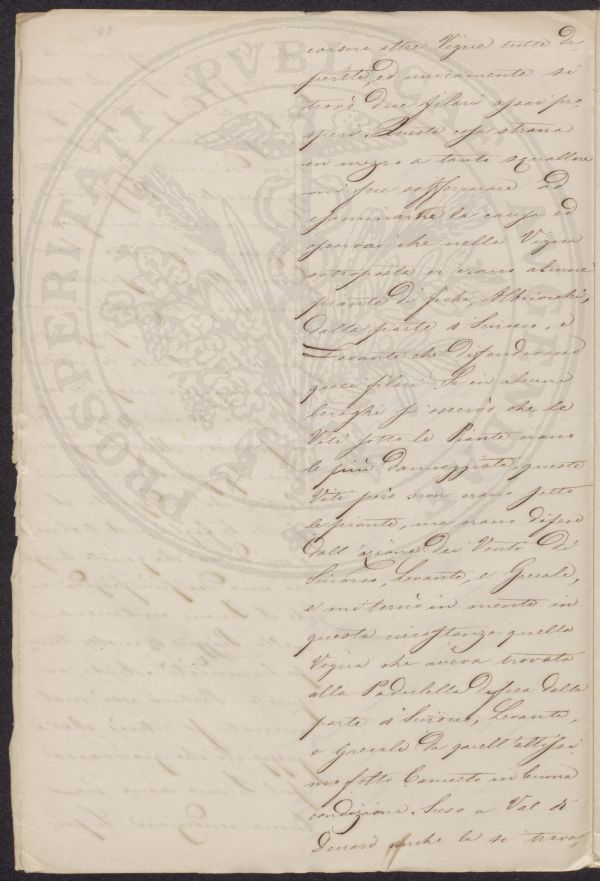 PROSPERITATI PVBLICAE AVGENDAE
corsera altre Vigne tutte di
perite, ed unicamente si
trovò due filari assai pro-
speri. Questa cosa strana
in mezzo a tanto squallore
mi fece soffermare ad
esaminarne la causa ed
osservai che nella Vigna
sottoposta vi erano alcune
piante di fichi, Albicocchi,
dalla parte a Scirocco, e
Levante che difendevano
quei filari. Se in alcuni
luoghi si osservò che le
Viti sotto le Piante erano
le più danneggiate, queste
Viti però non erano sotto
le piante, ma erano difese
dall'azione dei Venti di
Scirocco, Levante, e Grecale,
e mi tornò in mente in
questa circostanza quella
Vigna che aveva trovata
alla Paduletta difesa dalla
parte di Scirocco, Levante,
e Grecale da quell'altissi
mo fotto Canneto in buona
condizione. Sceso a Val di
Denari anche là si trova,